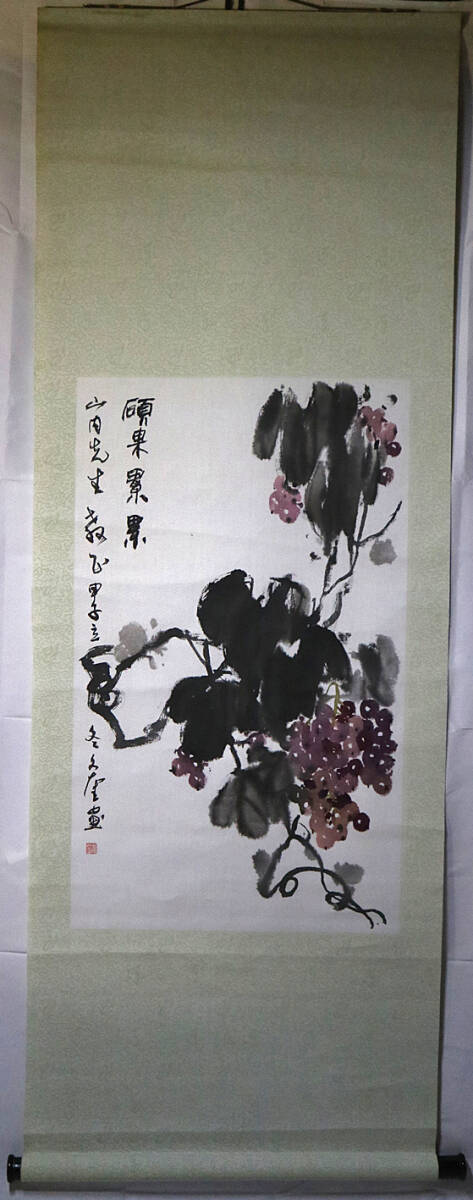 碩果累累
山内先生教正甲子立冬文奎画